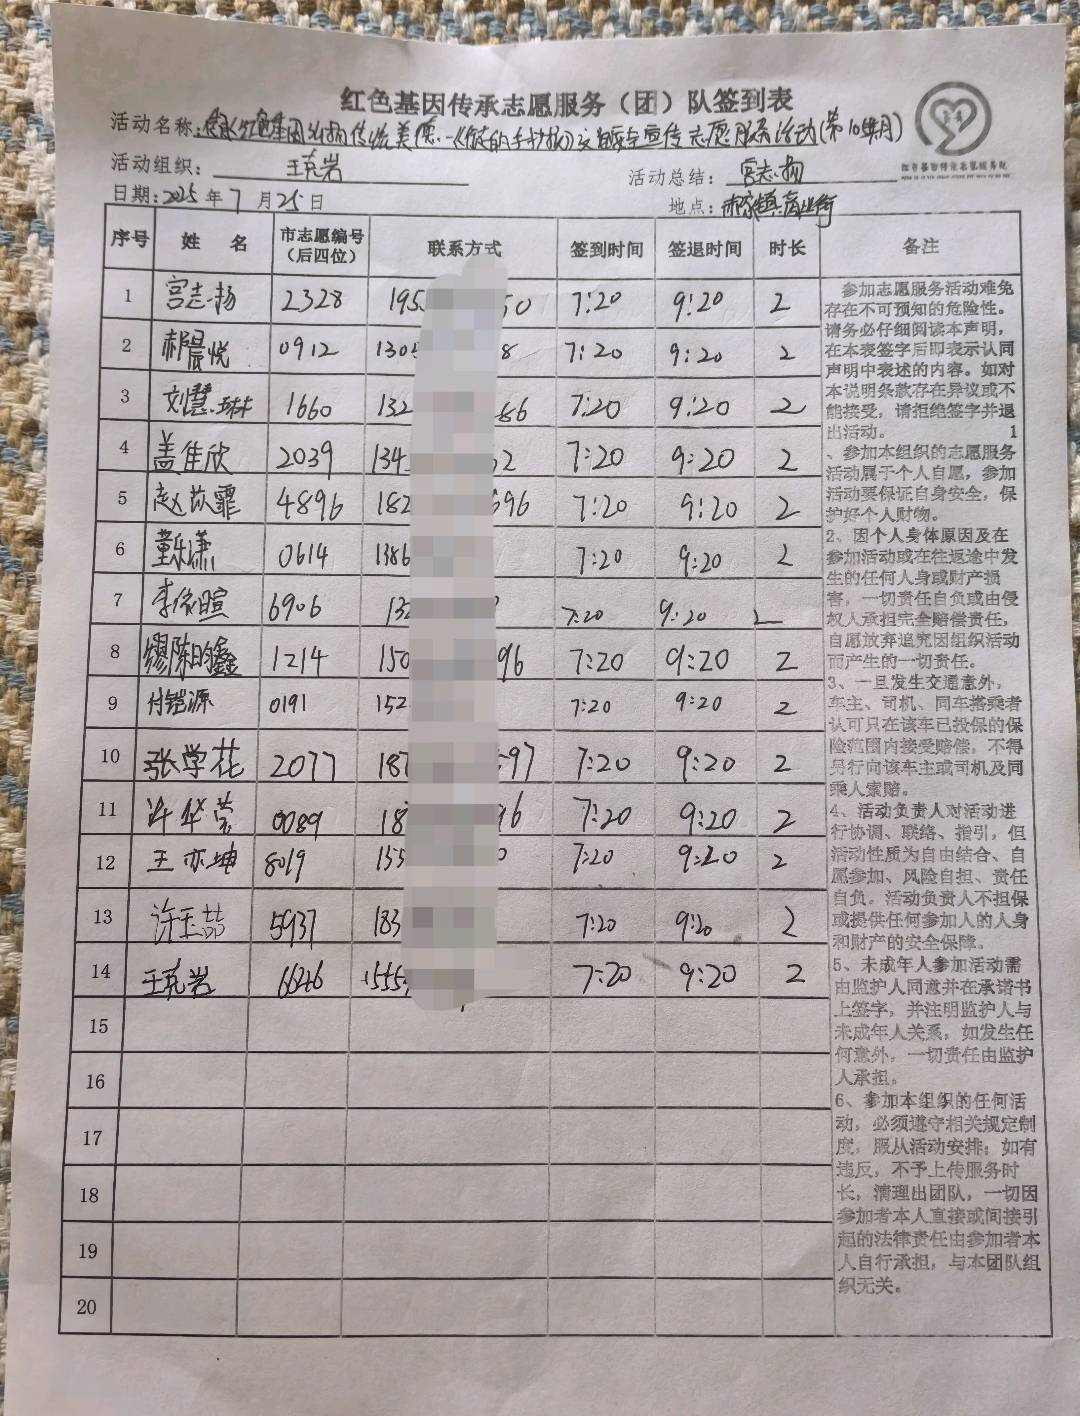 红色基因传承志愿服务（团）队签到表
活动名称：传统美德 交 宣传志愿服务活动(第10 月)
活动组织：王克岩
活动总结：宫志扬
日期：2025年7月25日
地点：商业街
序号 姓 名 市志愿编号（后四位） 联系方式 签到时间 签退时间 时长 备注
1 宫志扬 2328 195 50 7:20 9:20 2
2 郝晨悦 0912 130 8 7:20 9:20 2
3 刘慧琳 1660 132 66 7:20 9:20 2
4 盖佳欣 2039 134 2 7:20 9:20 2
5 赵苡霏 4896 182 696 7:20 9:20 2
6 董乐潇 0614 1386 7:20 9:20 2
7 李依暄 6906 13 7:20 9:20 2
8 缪陈昀鑫 1214 150 96 7:20 9:20 2
9 付铠源 0191 152 7:20 9:20 2
10 张学花 2077 187 97 7:20 9:20 2
11 许华莹 0089 18 96 7:20 9:20 2
12 王亦坤 8019 155 0 7:20 9:20 2
13 许玉喆 5937 183 7:20 9:20 2
14 王克岩 6646 1555 7:20 9:20 2
15
16
17
18
19
20
参加志愿服务活动难免
存在不可预知的危险性。
请务必仔细阅读本声明，
在本表签字后即表示认同
声明中表述的内容。如对
本说明条款存在异议或不
能接受，请拒绝签字并退
出活动。 1
、参加本组织的志愿服务
活动属于个人自愿，参加
活动要保证自身安全，保
护好个人财物。
2、因个人身体原因及在
参加活动或在往返途中发
生的任何人身或财产损
害，一切责任自负或由侵
权人承担完全赔偿责任，
自愿放弃追究因组织活动
而产生的一切责任。
3、一旦发生交通意外，
车主、司机、同车搭乘者
认可只在该车已投保的保
险范围内接受赔偿，不得
另行向该车主或司机及同
乘人索赔。
4、活动负责人对活动进
行协调、联络、指引，但
活动性质为自由结合、自
愿参加、风险自担、责任
自负。活动负责人不担保
或提供任何参加人的人身
和财产的安全保障。
5、未成年人参加活动需
由监护人同意并在承诺书
上签字，并注明监护人与
未成年人关系，如发生任
何意外，一切责任由监护
人承担。
6、参加本组织的任何活
动，必须遵守相关规定制
度，服从活动安排；如有
违反，不予上传服务时
长，清理出团队，一切因
参加者本人直接或间接引
起的法律责任由参加者本
人自行承担，与本团队组
织无关。